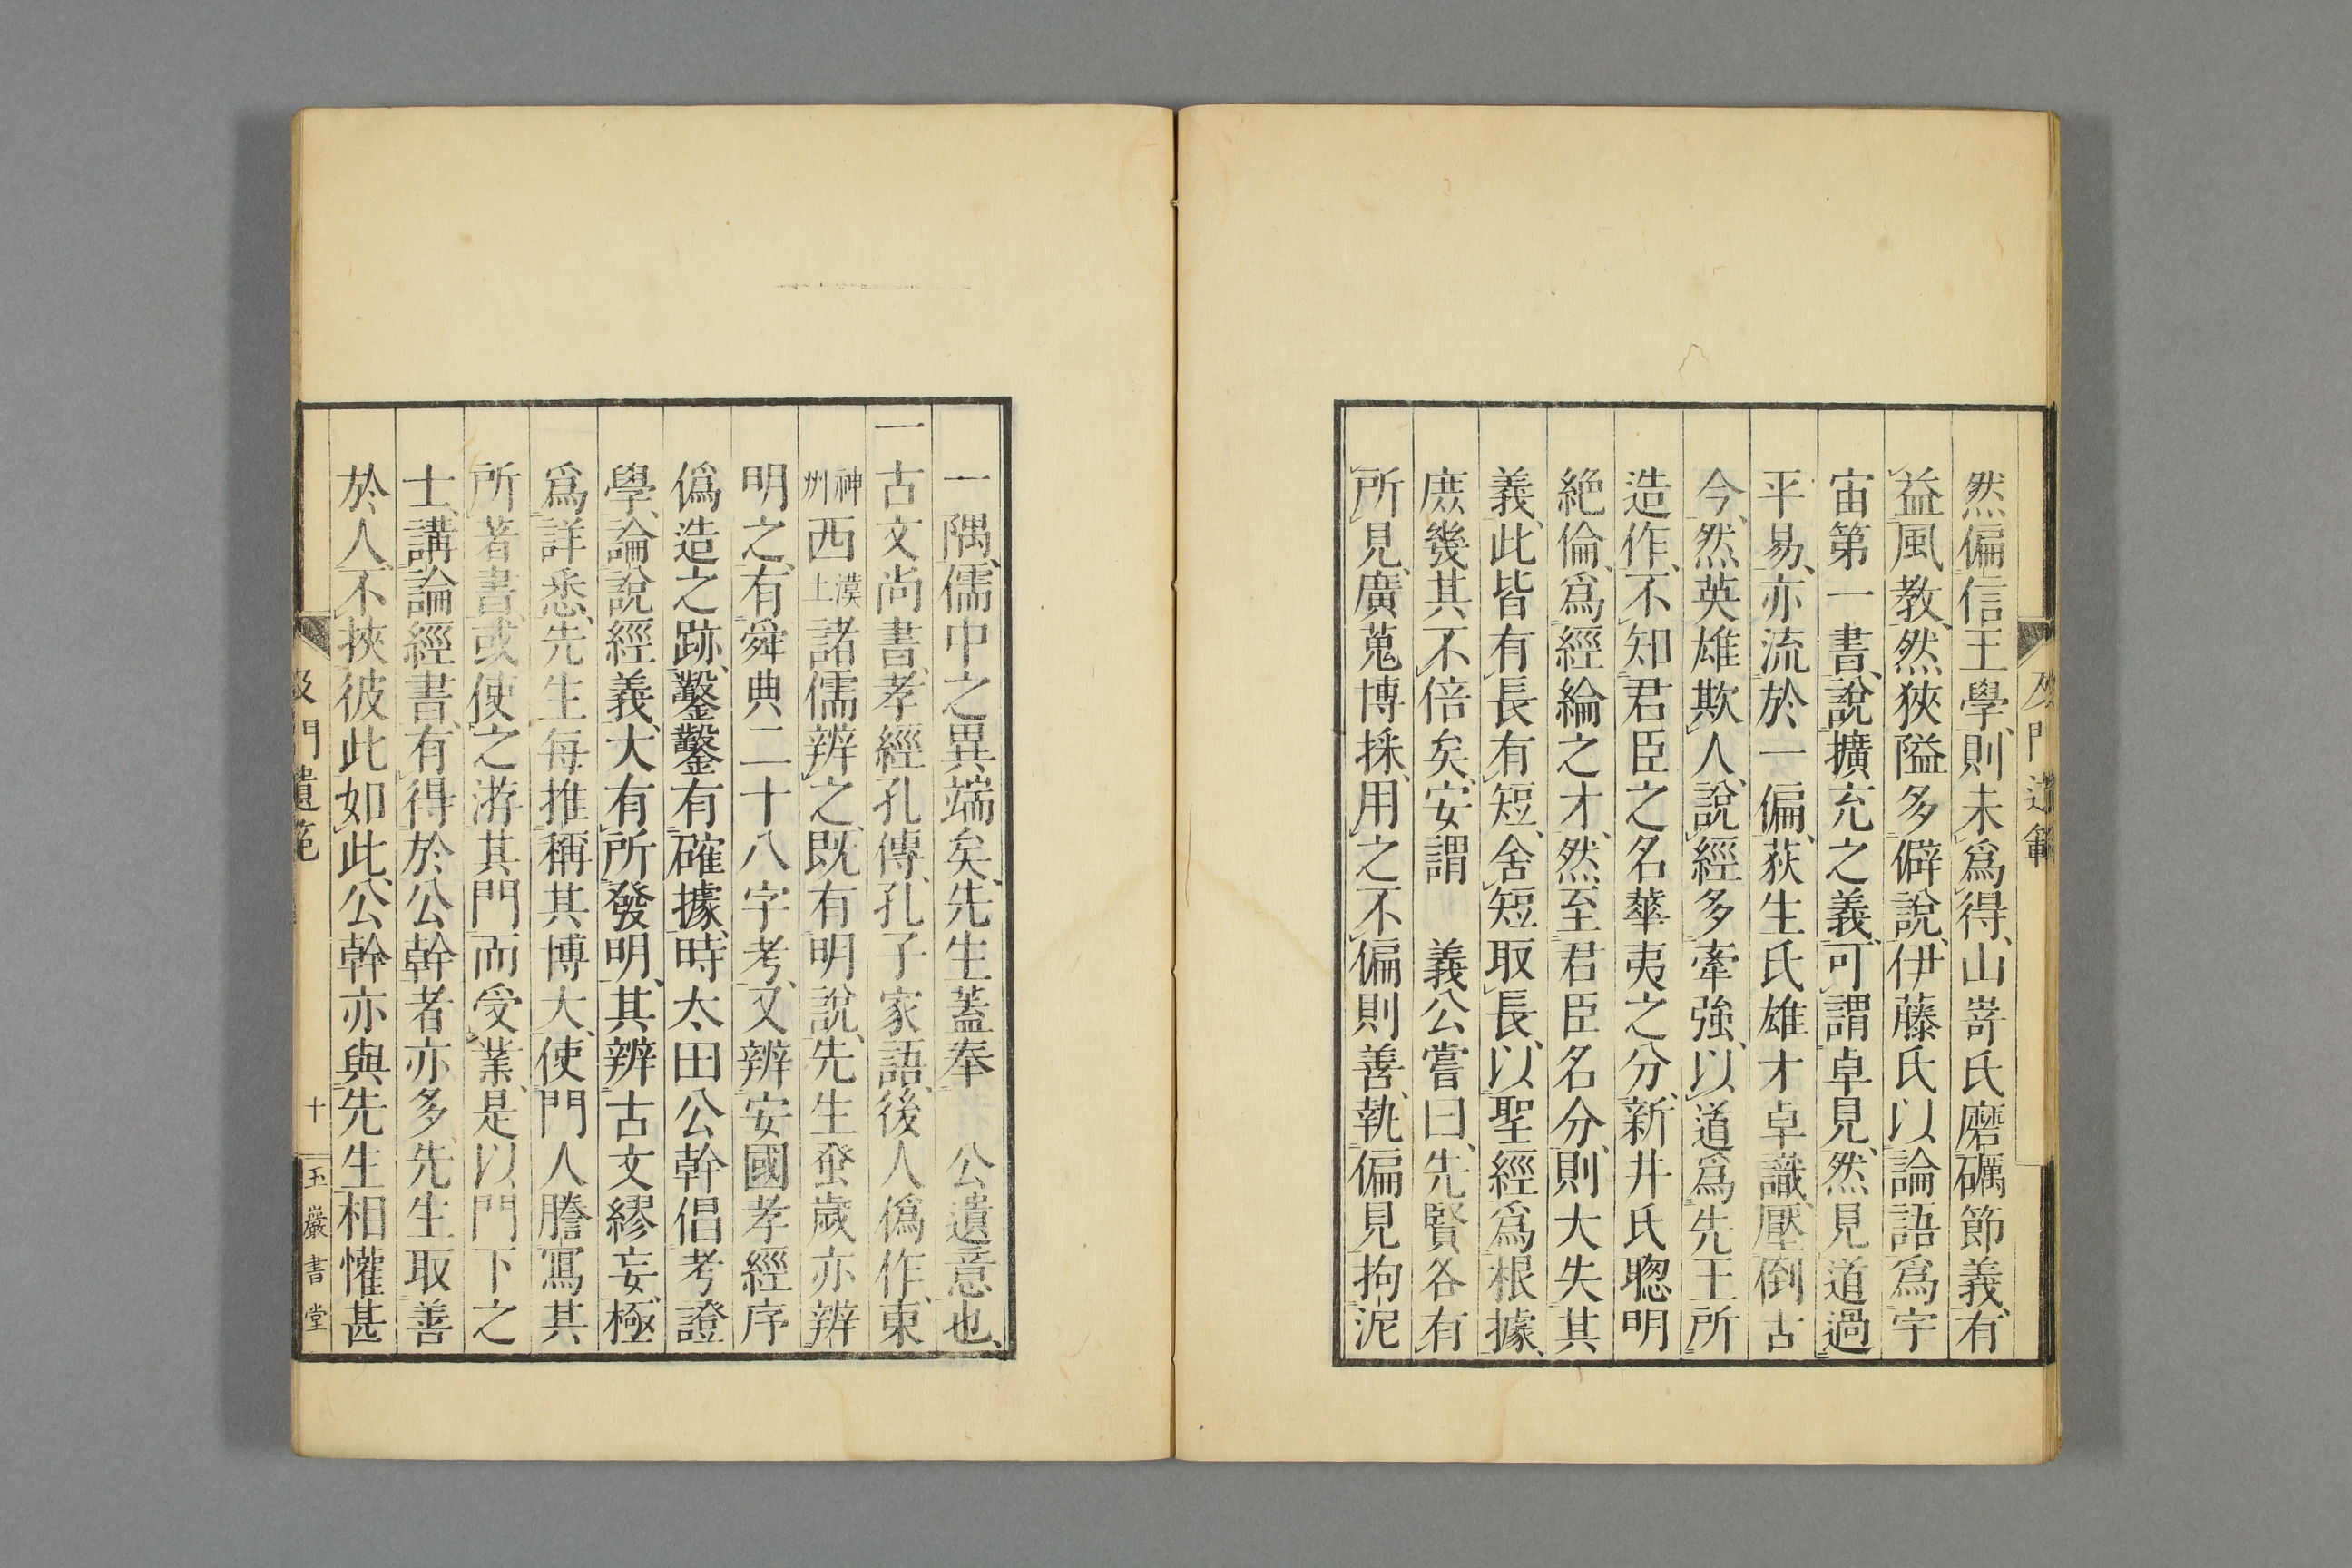 然偏信王學、則未爲得、山嵜氏磨礪節義、有
益風教、然狹隘多僻說、伊藤氏以論語爲宇
宙第一書、說擴充之義、可謂卓見、然見道過
平易、亦流於一偏、荻生氏雄才卓識、壓倒古
今、然英雄欺人、說經多牽強、以道爲先王所
造作、不知君臣之名華夷之分、新井氏聰明
絶倫、爲經綸之才、然至君臣名分、則大失其
義、此皆有長有短、舍短取長、以聖經爲根據、
庶幾其不倍矣、安謂　義公嘗曰、先賢各有
所見、廣蒐博採、用之不偏則善、執偏見拘泥
及門遺範
一隅、儒中之異端矣、先生蓋奉　公遺意也、
一古文尚書、孝經孔傳、孔子家語、後人僞作、東
神州西漢土諸儒辨之、既有明說、先生蚤歲亦辨
明之、有舜典二十八字考、又辨安國孝經序
僞造之跡、鑿鑿有確據、時太田公幹倡考證
學、論說經義、大有所發明、其辨古文繆妄、極
爲詳悉、先生每推稱其博大、使門人謄寫其
所著書、或使之游其門而受業、是以門下之
士、講論經書、有得於公幹者亦多、先生取善
於人、不挾彼此如此、公幹亦與先生相懽甚
及門遺範
十
玉巖書堂